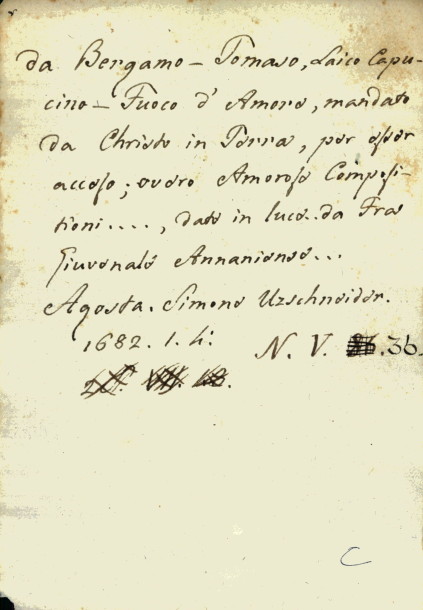 da Bergamo - Tomaso, Laico Capu-
cino - Fuoco d' Amore, mandato
da Christo in Terra, per esser
acceso; overo Amorose Composi-
tioni...., date in luce..da Fra
Giuvenale Annaniense...
Agosta. Simone Uzschneider.
1682. 1. 4:
N. V. 36.
C